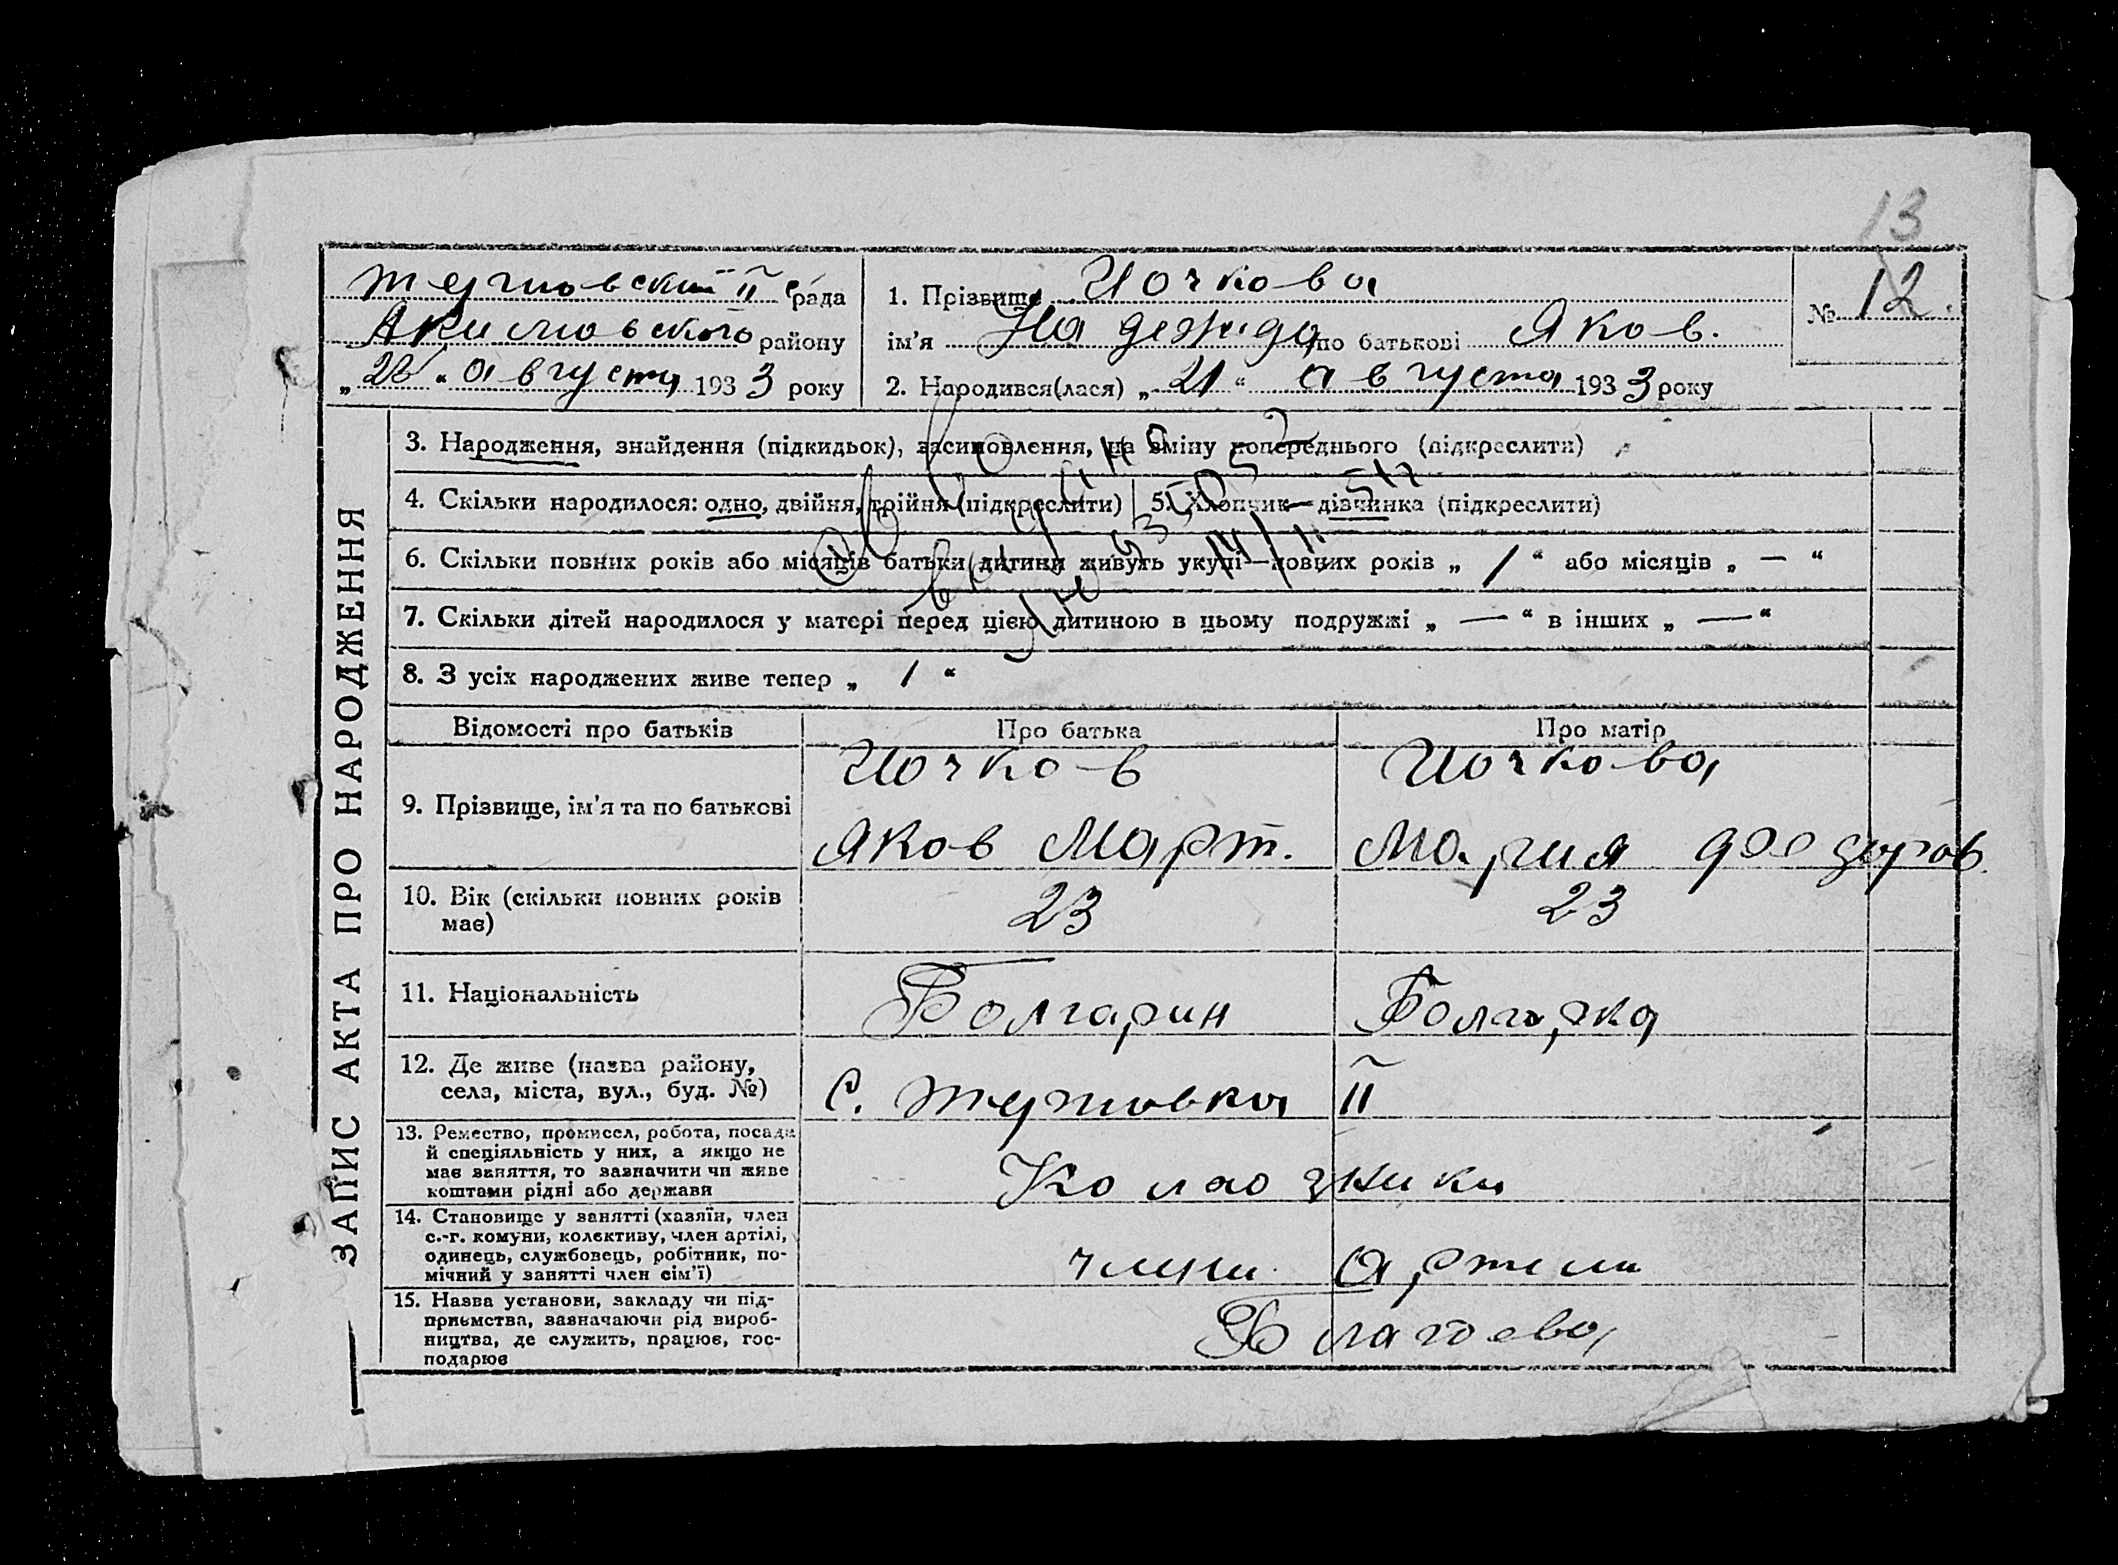 13
Тершовский ІІ с/рада
Акимовского району
„ 28 “ августа 1933 року
1. Прізвище Иочкова
ім’я Надежда по батькові Яков.
2. Народився(лася) „ 21 “ августа 1933 року
№ 12.
ЗАПИС АКТА ПРО НАРОДЖЕННЯ
3. Народження, знайдення (підкидьок), засиновлення, на зміну попереднього (підкреслити)
4. Скільки народилося: одно, двійня, трійня (підкреслити)
5. Хлопчик—дівчинка (підкреслити)
6. Скільки повних років або місяців батьки дитини живуть укупі—повних років „ 1 “ або місяців „ — “
7. Скільки дітей народилося у матері перед цією дитиною в цьому подружжі „ — “ в інших „ — “
8. З усіх народжених живе тепер „ 1 “
Відомості про батьків
Про батька
Про матір
9. Прізвище, ім’я та по батькові
Иочков
Яков Март.
Иочкова
Мария Феодоров.
10. Вік (скільки повних років
має)
23
23
11. Національність
Болгарин
Болгарка
12. Де живе (назва району,
села, міста, вул., буд. №)
с. ІІ
13. Ремество, промисел, робота, посада
й спеціяльність у них, а якщо не
має заняття, то зазначити чи живе
коштами рідні або держави
Колхозники
14. Становище у занятті (хазяїн, член
с.-г. комуни, колективу, член артілі,
одинець, службовець, робітник, по-
мічний у занятті член сім’ї)
члены артели
15. Назва установи, закладу чи під-
приємства, зазначаючи рід вироб-
ництва, де служить, працює, гос-
подарює
Благоева